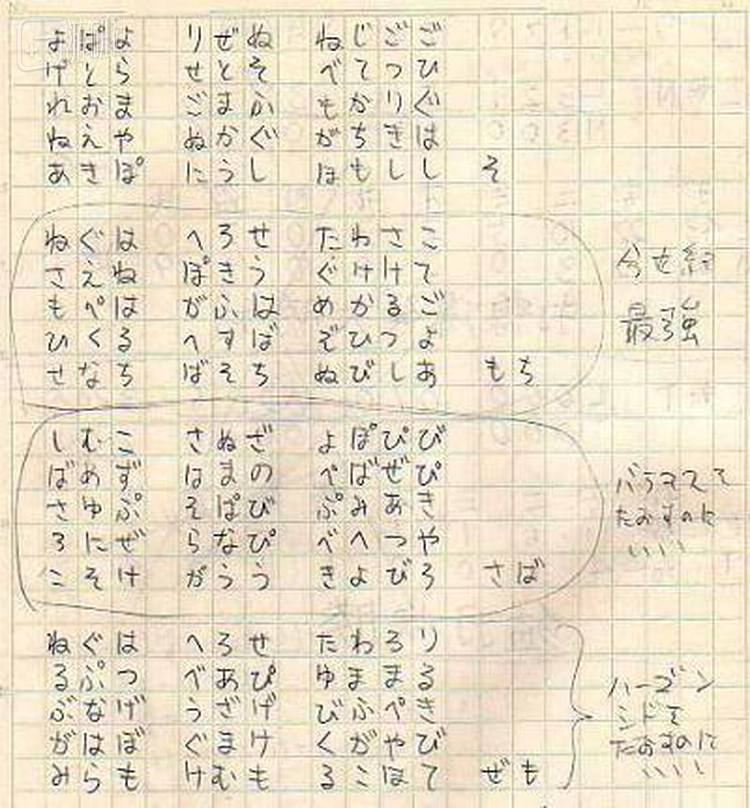 よぱよ りぜぬ ねじごご
げとら せとそ べてつひ
れおま ごまふ もかりぐ
ねえや ぬかぐ がちきは
あきぽ にうし ほもしし そ
ねぐは へろせ たわさこ
さえね ぽきう ぐけけて
もぺは がふは めかるご
ひくる へすば ぞひつよ
せなち ばそち ぬびしあ もち
今世紀
最強
しむこ さぬざ よぽぴび
ばめず はまの ぺばぜぴ
さゆぷ そぱび ぷみあき
ろにぜ らなぴ べへつや
こそけ がうう きよびろ さば
バラモスを
たおすのに
いいい
ねぐは へろせ たわろり
るぷつ べあぴ ゆままる
ぶなげ うざげ びふぺき
がはぼ ぐまけ くがやび
みらも けむも るこほて ぜも
ハーゴン
シドを
たおすのに
いいい